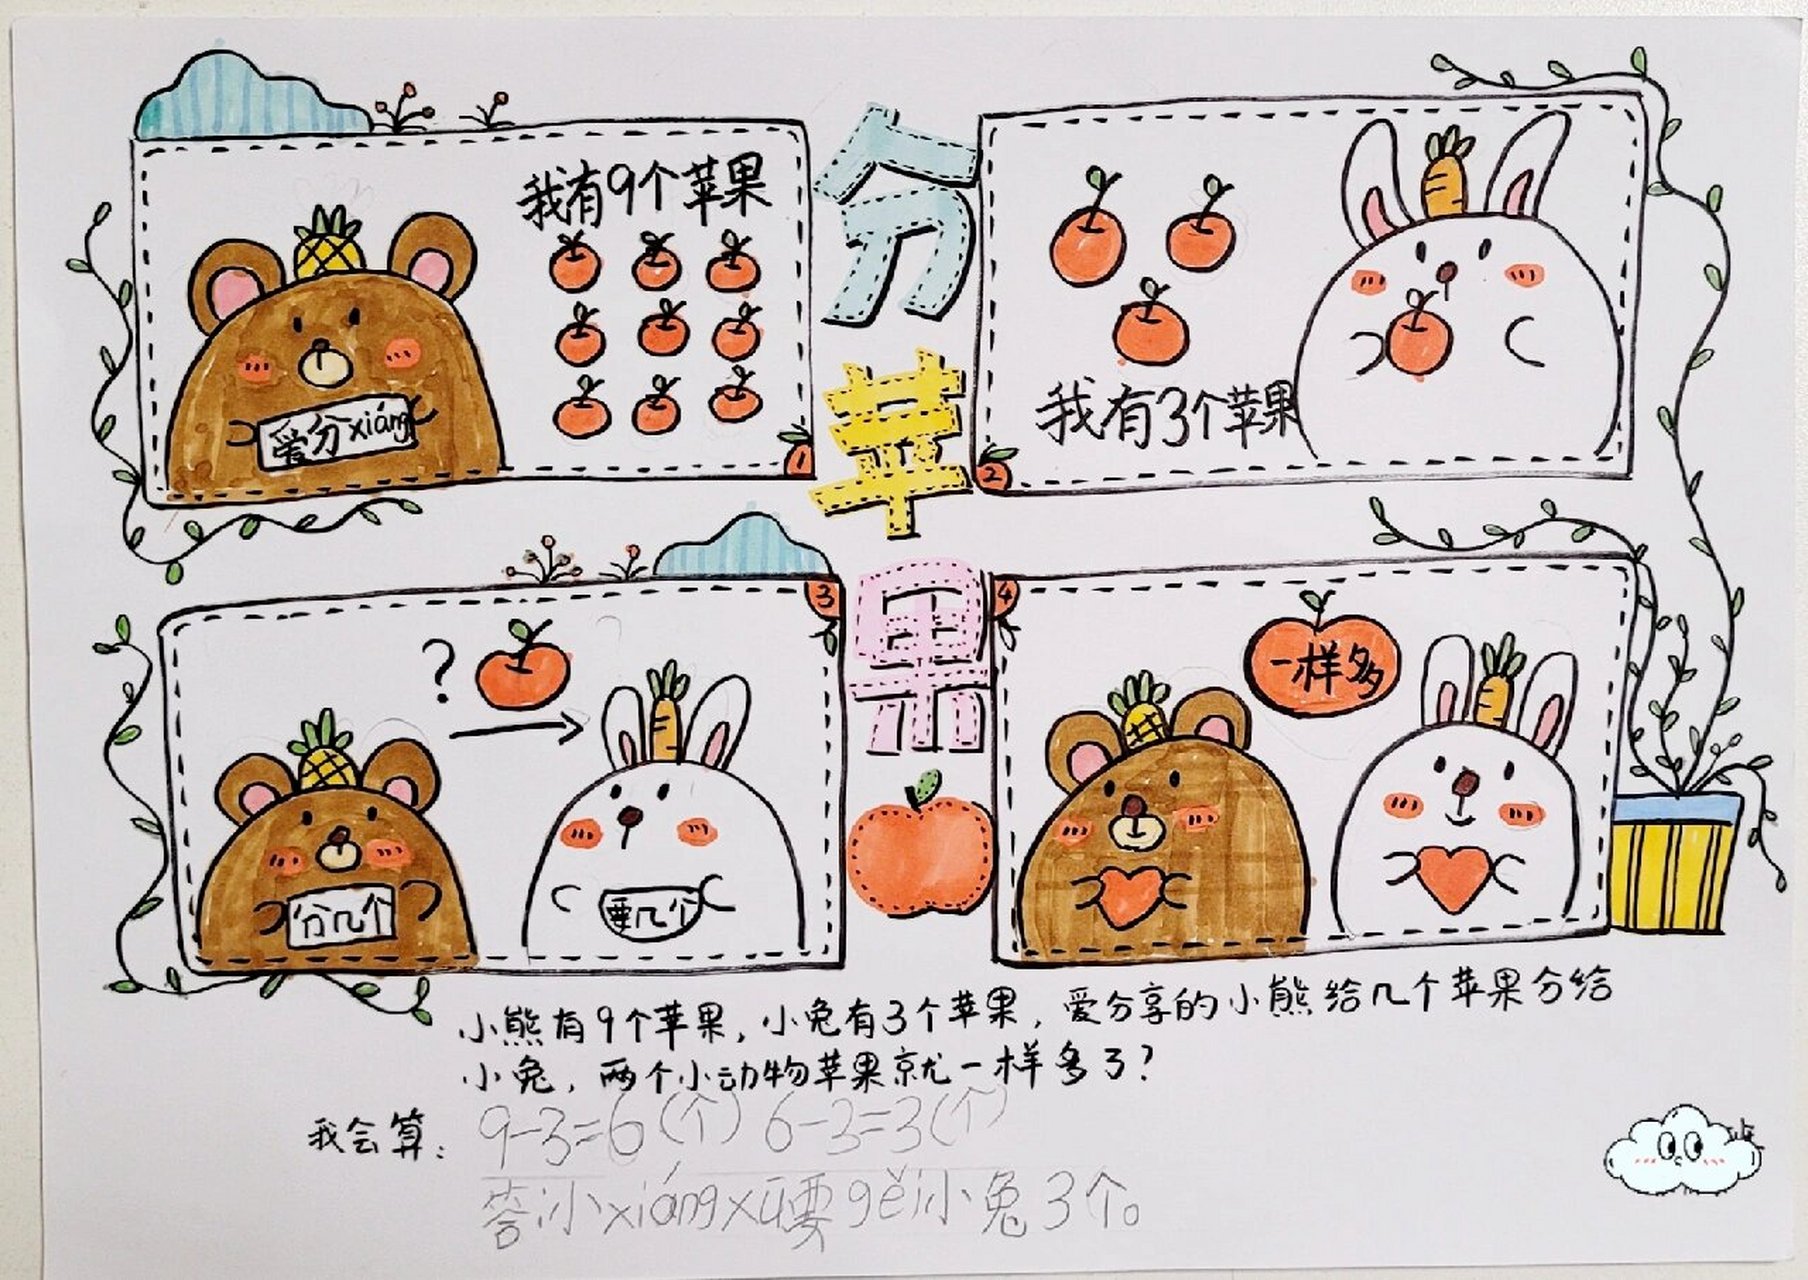 分苹果
我有9个苹果
爱分xiáng
1
我有3个苹果
2
?
分几个
要几个
3
一样多
4
小熊有9个苹果,小兔有3个苹果,爱分享的小熊给几个苹果分给
小兔,两个小动物苹果就一样多了?
我会算:
9-3=6(个) 6-3=3(个)
答:小xiáng xū要gěi小兔3个。